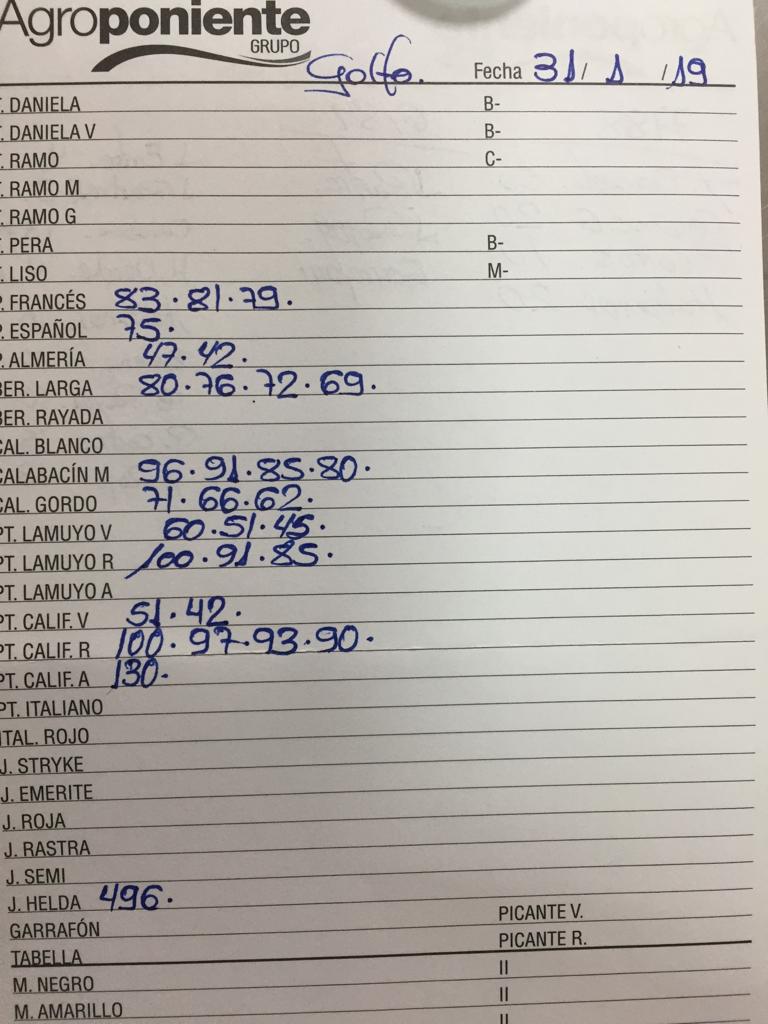 Agroponiente
GRUPO
Golfo. Fecha 31/ 1 /19
T. DANIELA B-
T. DANIELA V B-
T. RAMO C-
T. RAMO M
T. RAMO G
T. PERA B-
T. LISO M-
P. FRANCÉS 83.81.79.
P. ESPAÑOL 75.
P. ALMERÍA 47.42.
BER. LARGA 80.76.72.69.
BER. RAYADA
CAL. BLANCO
CALABACÍN M 96.91.85.80.
CAL. GORDO 71.66.62.
PT. LAMUYO V 60.51.45.
PT. LAMUYO R 100.91.85.
PT. LAMUYO A
PT. CALIF. V 51.42.
PT. CALIF. R 100.97.93.90.
PT. CALIF. A 130.
PT. ITALIANO
ITAL. ROJO
J. STRYKE
J. EMERITE
J. ROJA
J. RASTRA
J. SEMI
J. HELDA 496.
GARRAFÓN PICANTE V.
TABELLA PICANTE R.
M. NEGRO II
M. AMARILLO II
II